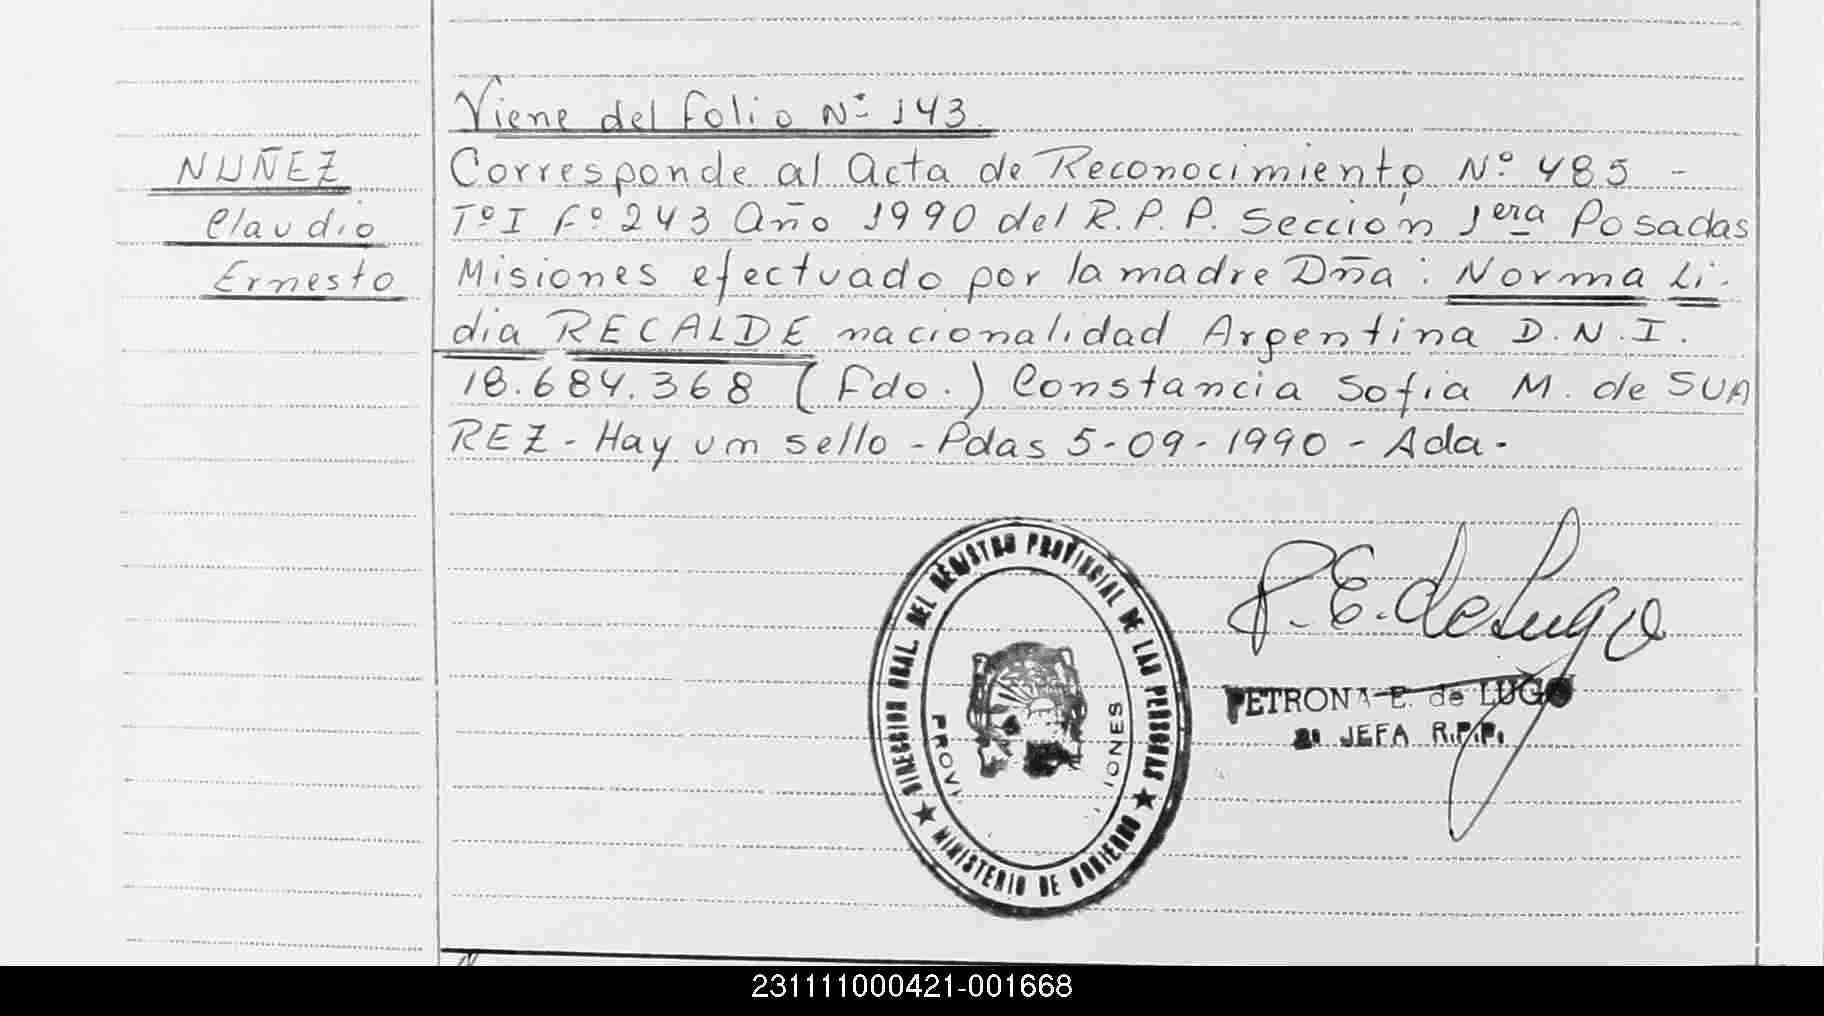 Viene del folio Nº 143.
NUÑEZ
Claudio
Ernesto
Corresponde al Acta de Reconocimiento Nº 485 -
Tº I Fº 243 Año 1990 del R.P.P. Sección 1era Posadas
Misiones efectuado por la madre Dña: Norma Li-
dia RECALDE nacionalidad Argentina D.N.I.
18.684.368 (Fdo.) Constancia Sofia M. de SUA
REZ - Hay un sello - Pdas 5-09-1990 - Ada.
DIRECCION GRAL. DEL REGISTRO PROVINCIAL DE LAS PERSONAS
MINISTERIO DE GOBIERNO
P.E. de Lugo
PETRONA E. de LUGO
JEFA R.P.P.
231111000421-001668